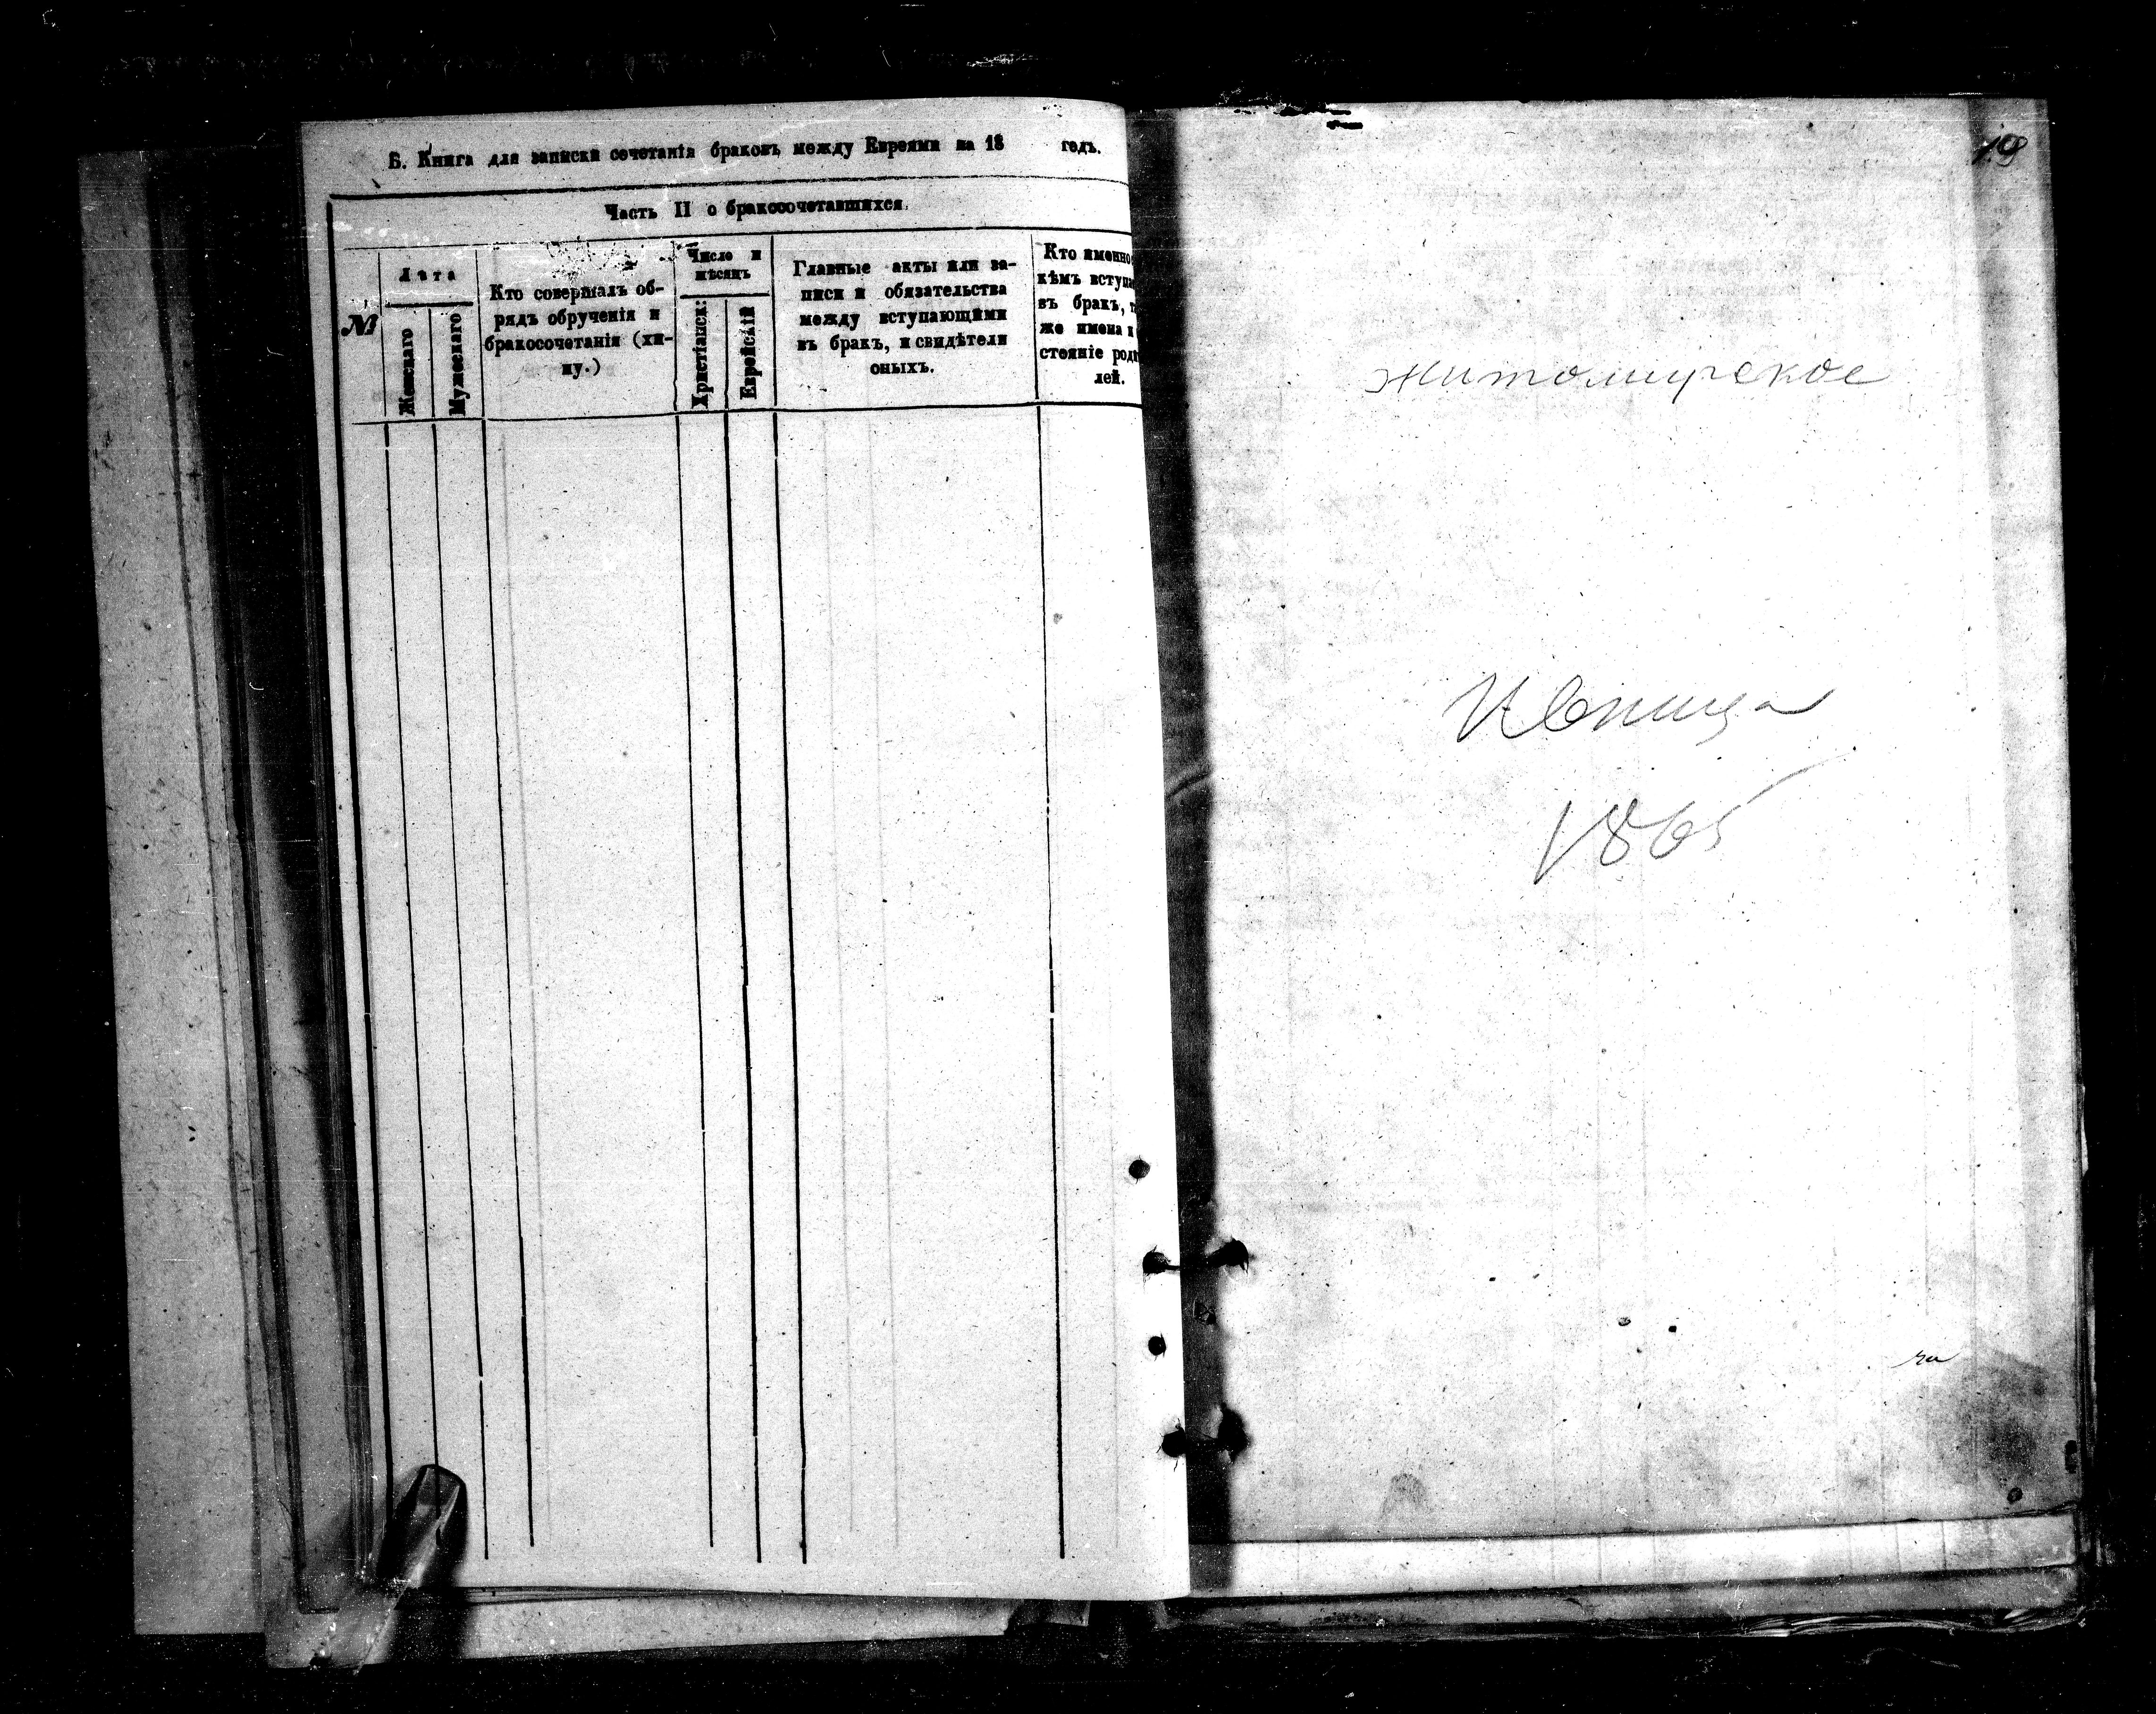 Б. Книга для записки сочетанія браковъ между Евреями на 18 годъ.
Часть II о бракосочетавшихся.
№
Лѣта
Женскаго
Мужескаго
Кто совершалъ об-
рядъ обрученія и
бракосочетанія (хи-
пу.)
Число и
мѣсяцъ
Христіанск:
Еврейскій
Главные акты или за-
писи и обязательства
между вступающими
въ бракъ, и свидѣтели
оныхъ.
Кто именно
кѣмъ вступа
въ бракъ, т
же имена и
стояніе роди
лей.
19
Житомирское
Ивница
1865